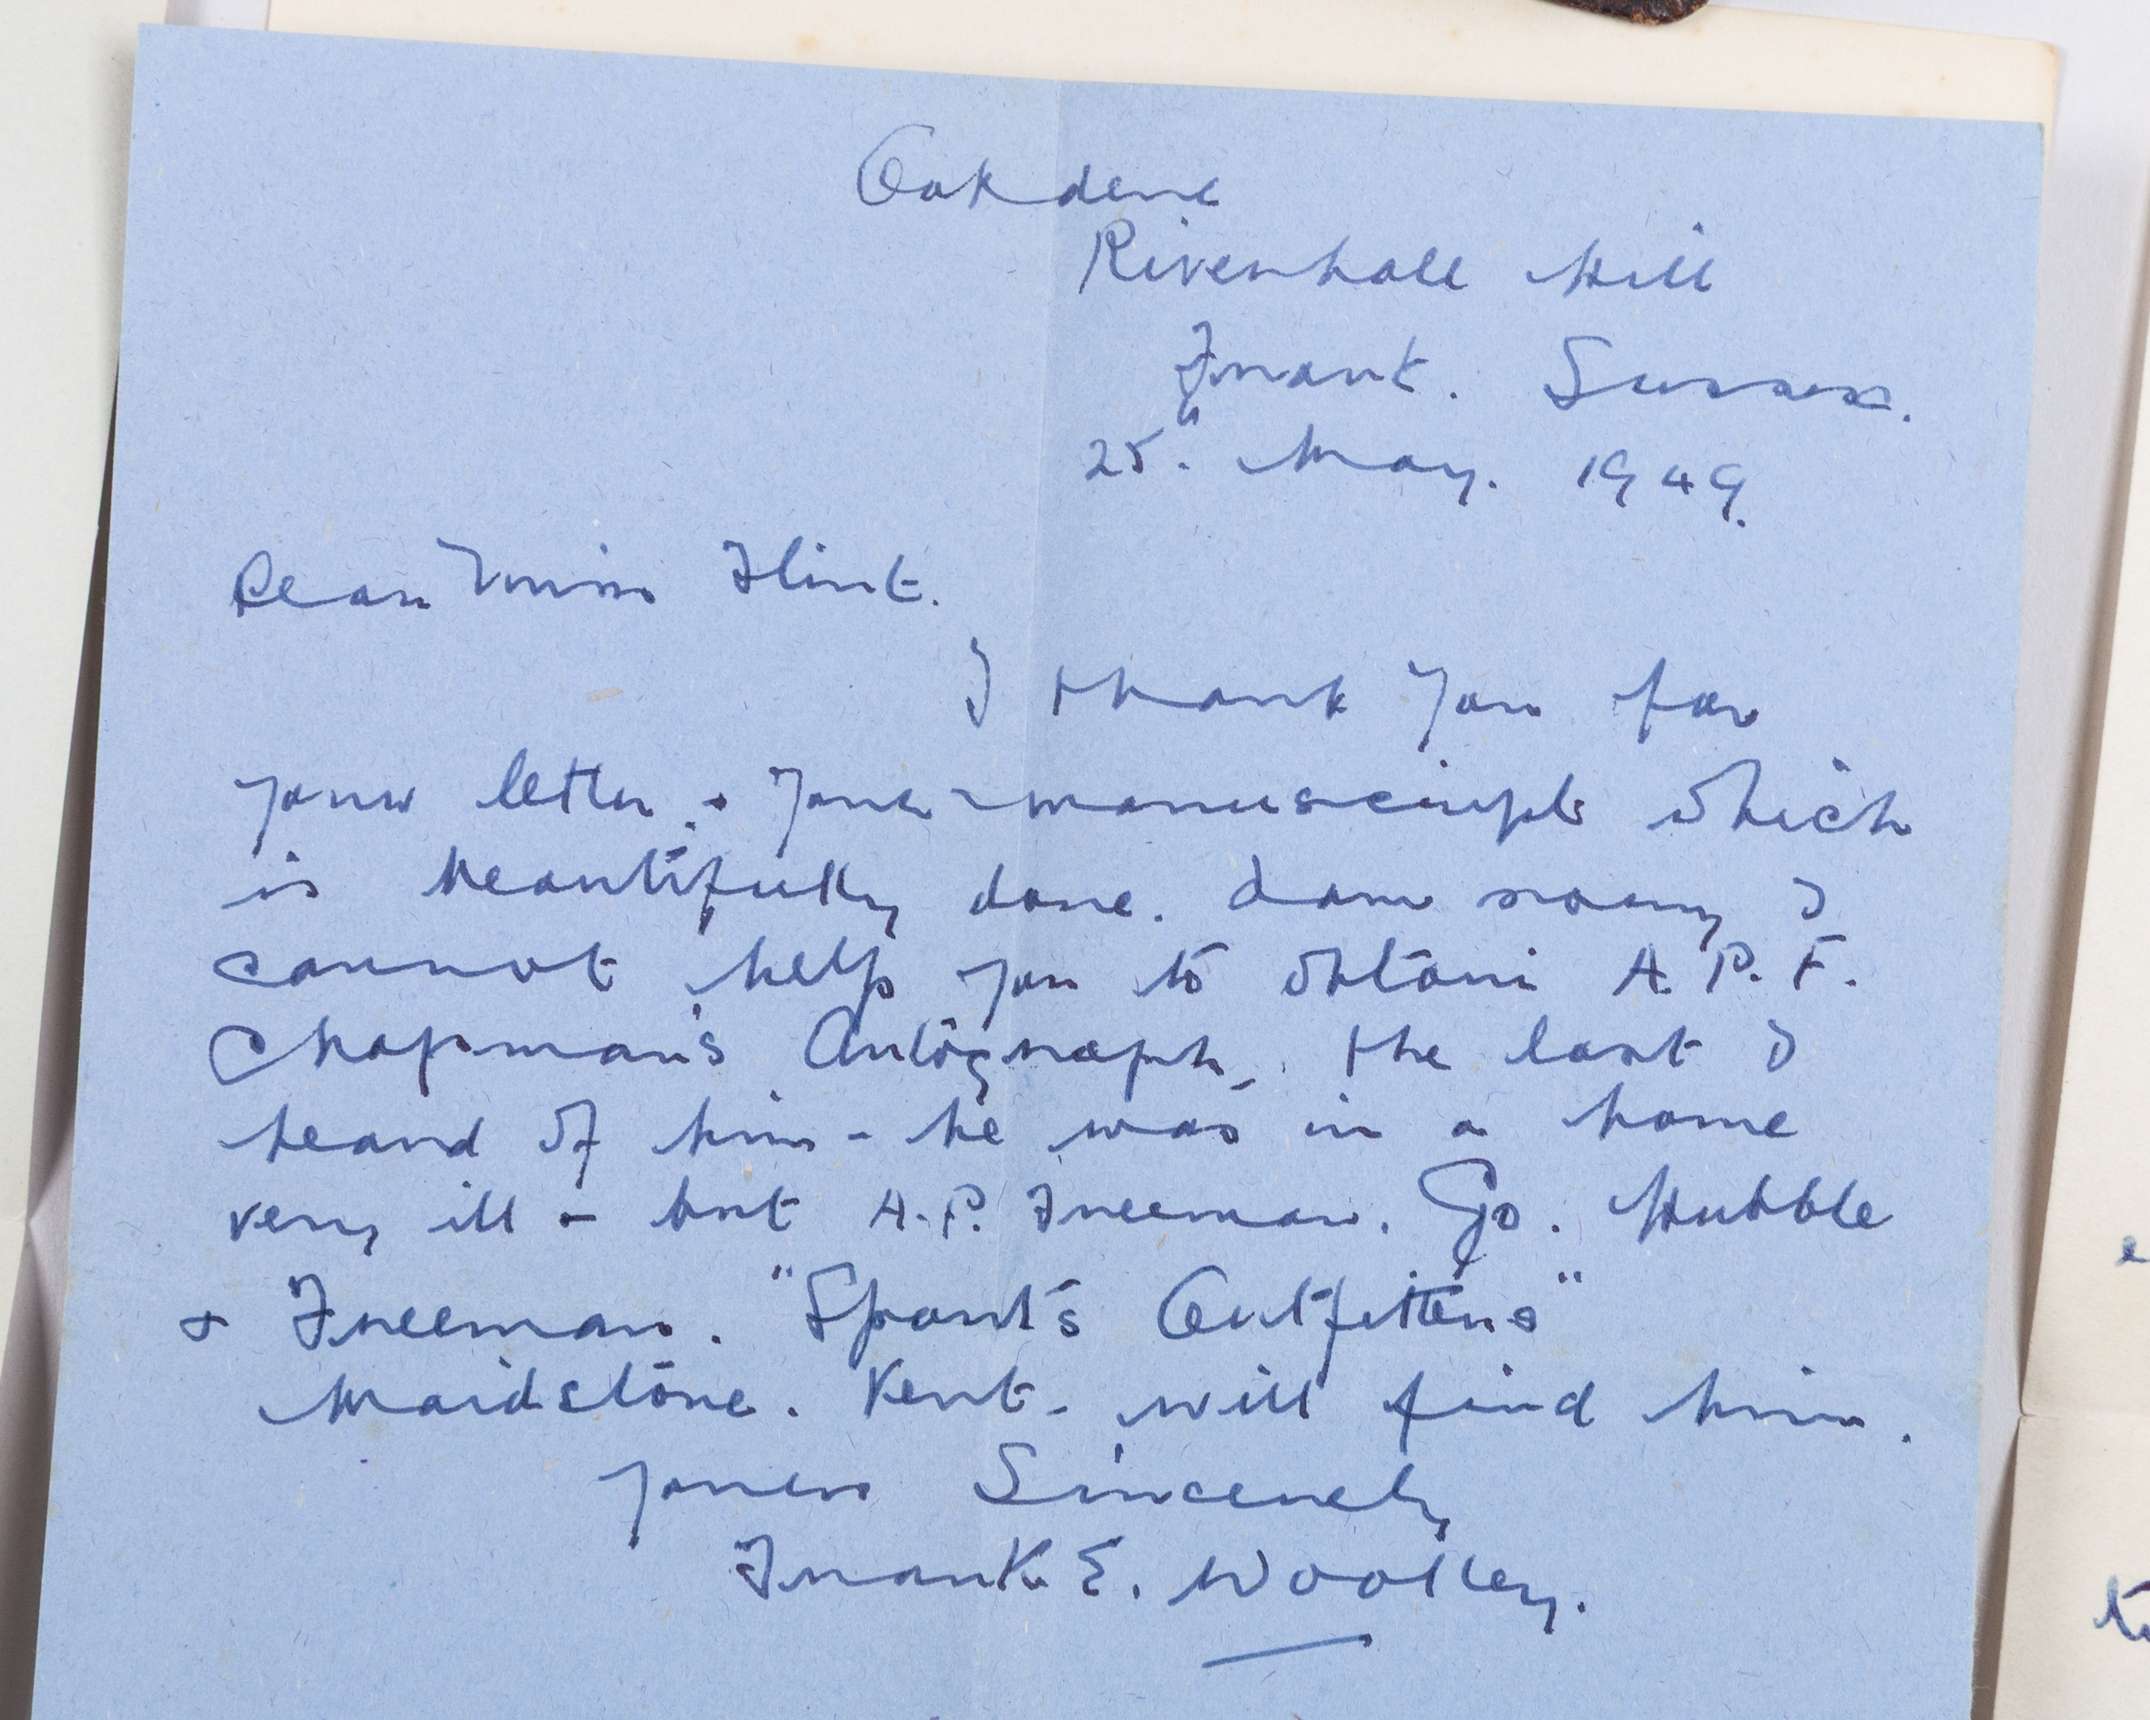 Oakdene
Rivenhall Hill
Frant. Sussex.
25" May. 1949.
Dear Miss Flint.
I thank you for
your letter. & your manuscript which
is beautifully done. I am sorry I
cannot help you to obtain A.P.F.
Chapman's Autograph. the last I
heard of him - he was in a home
very ill - but A.P. Freeman. C/o. Hubble
& Freeman. "Sport's Outfitters"
Maidstone. Kent - will find him.
Yours Sincerely
Frank E. Woolley.